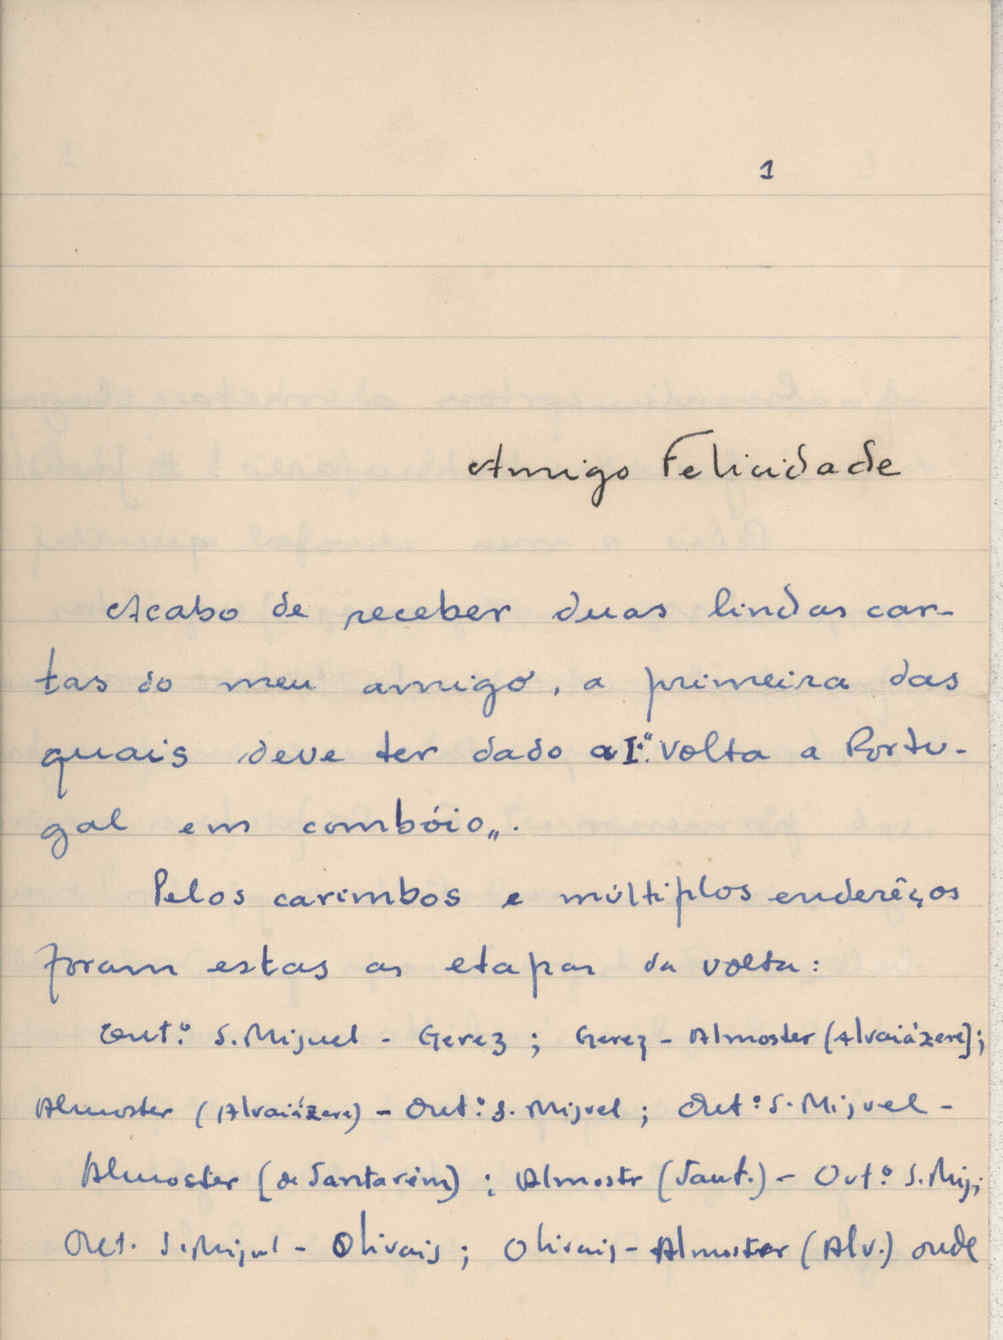 1
Amigo Felicidade
Acabo de receber duas lindas car-
tas do meu amigo, a primeira das
quais deve ter dado a I.ª volta a Portu-
gal em combóio„.
Pelos carimbos e múltiplos enderêços
foram estas as etapas da volta:
Out.º S. Miguel - Gerez ; Gerez - Almoster (Alvaiázere);
Almoster (Alvaiázere) - Out.º S. Miguel ; Out.º S. Miguel -
Almoster (de Santarém) ; Almostr (Sant.) - Out.º S. Mig;
Out. S. Miguel - Olivais ; Olivais - Almoster (Alv.) onde